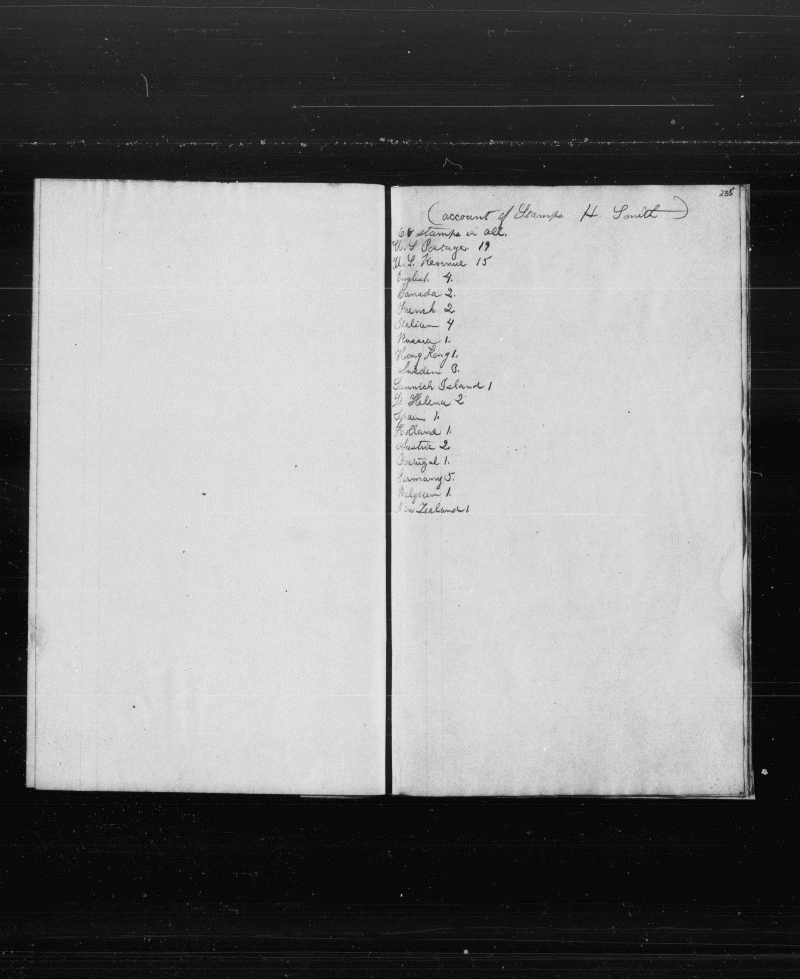 235
(account of Stamps H. Smith)
stamps in all.
U. S Postage 19
U. S. Revenue 15
English 4.
Canada 2.
French 2
Italian 4
Russia 1.
Hong Kong 1.
Sweden 3.
Sanwich Island 1
St Helena 2
Spain 1.
Holland 1.
Austria 2
Portugal 1.
Germany 5.
Belgium 1.
New Zealand 1